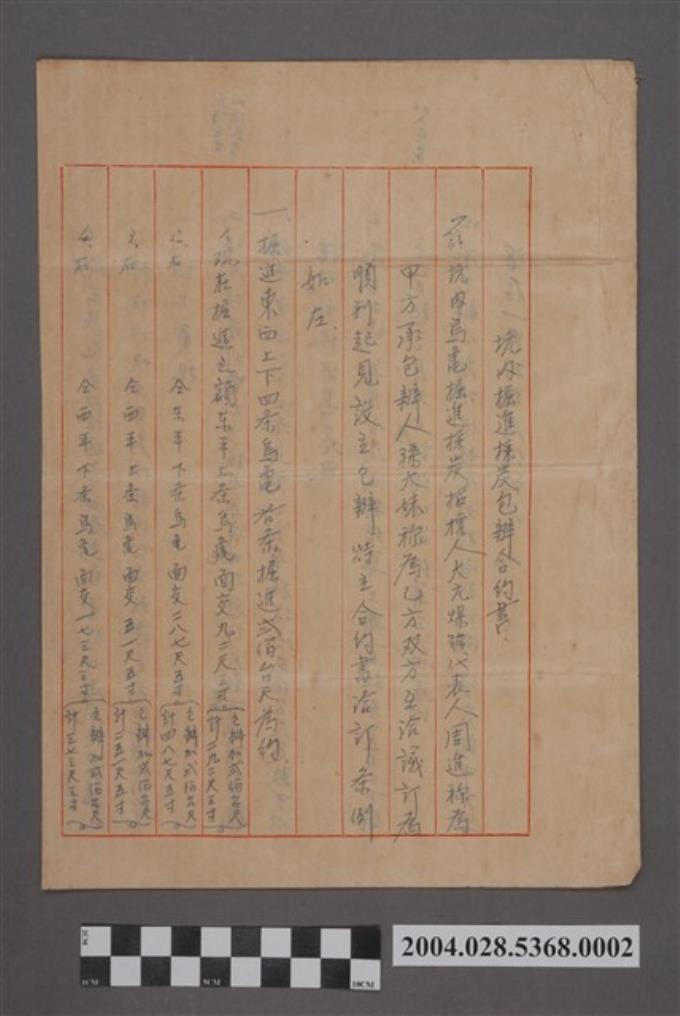 坑内掘進採炭包辦合約書.
茲坑内烏龜掘進採炭招擔人大元煤礦代表人周進称為
甲方承包辦人 称為乙方双方互洽議訂為
順利起見設立包辦特立合約書洽訂条例
如左.
一、掘進東西上下四条烏龜各条掘進弍佰台尺為約.
1、現在掘進之額东平上条烏龜面交九二尺三寸(包辦加弍佰台尺計二九二尺三寸)
2、右 仝东平下条烏龜面交二八七尺五寸(包辦加弍佰台尺計四八七尺五寸)
3、右 仝西平上条烏龜面交五一尺五寸(包辦加弍佰台尺計二五一尺五寸)
4、右 仝西平下条烏龜面交一七三尺三寸(包辦加弍佰台尺計三七三尺三寸)
1CM 5CM 10CM
2004.028.5368.0002